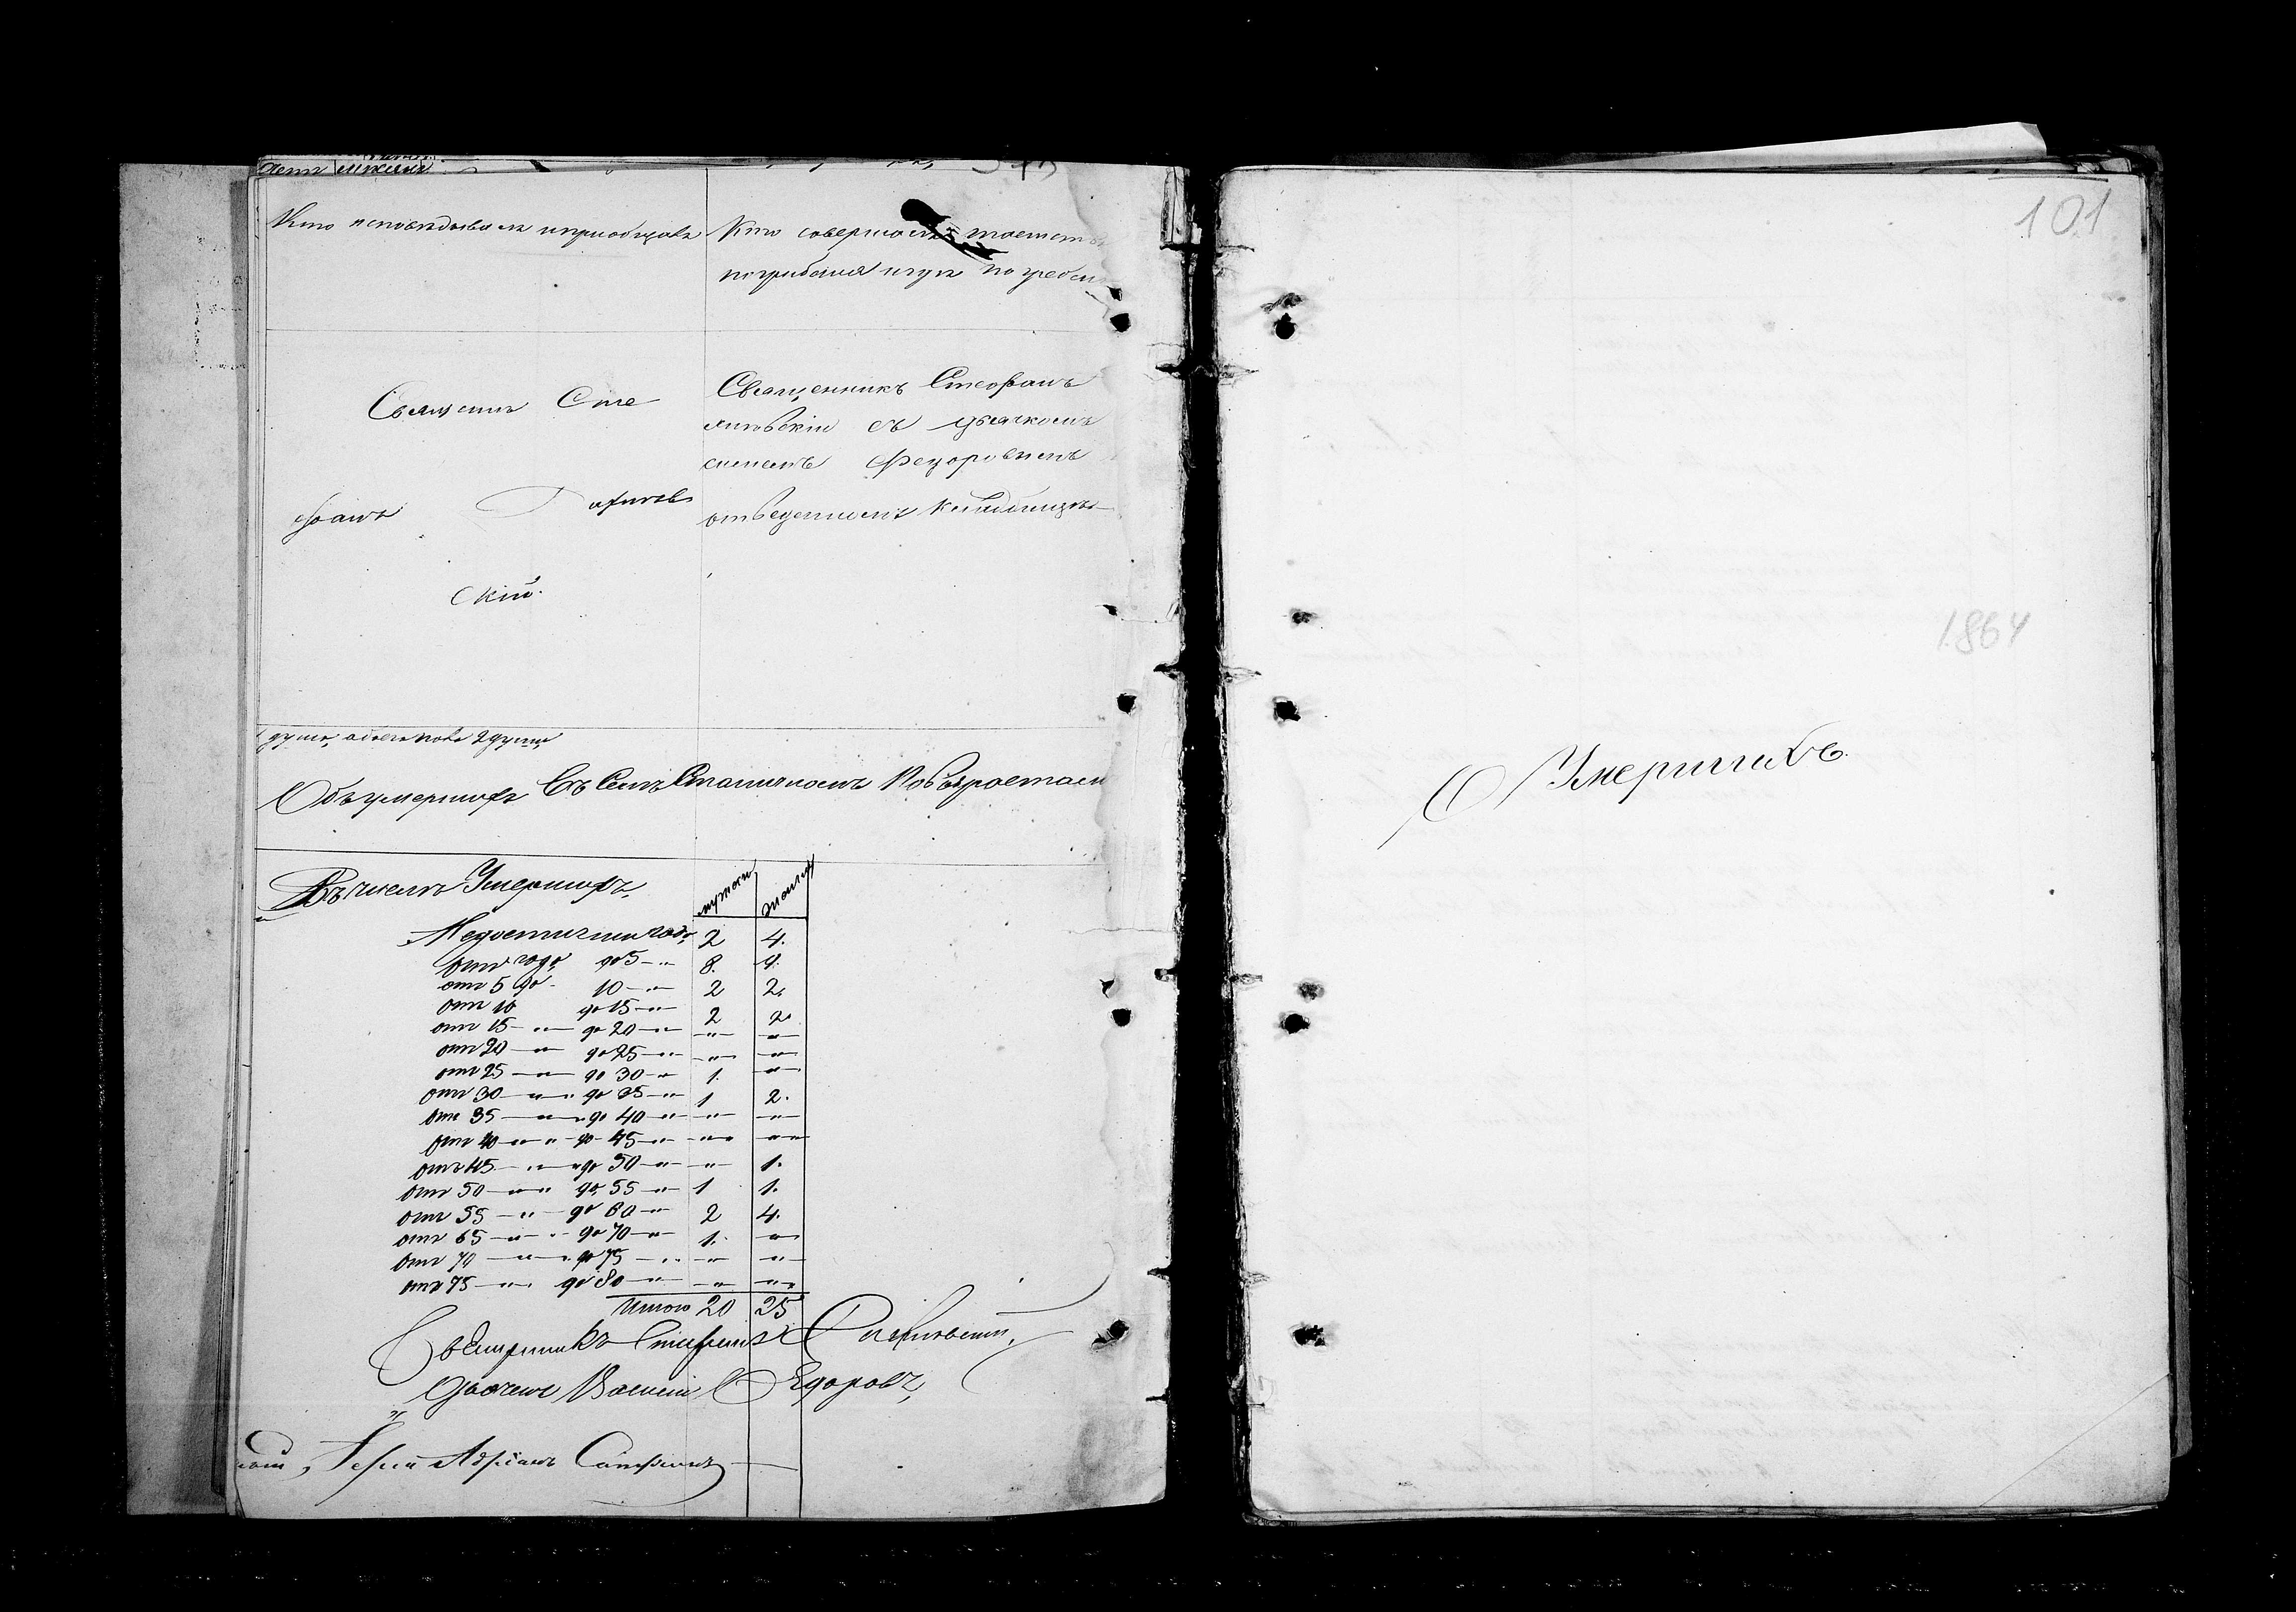 Кто исповѣдывалъ и пріобщалъ
Кто совершалъ таинств
погрибанія и гдѣ погребен
Священникъ Сте
фанъ
скій.
Священникъ Стефанъ
съ дьячкомъ
Федоровымъ
отведенномъ кладбищѣ
душъ, обоего пола 2 души
Объ умершихъ Въ Селѣ По возрастам
Въ числѣ Умершихъ
мужск женск
Недостигши года 2 4.
отъ года до 5 — " 8. 4.
отъ 5 до 10 — " 2 2.
отъ 10 до 15 — " 2 2
отъ 15 — " — до 20 — " — " — — " —
отъ 20 — " — до 25 — " — " — — " —
отъ 25 — " — до 30 — " 1. — " —
отъ 30 — " — " до 35 — " 1 2.
отъ 35 — " — " до 40 — " — " — — " —
отъ 40 — " — " до 45 — " — " — — " —
отъ 45 — " — " до 50 — " — " — 1.
отъ 50 — " — " до 55 — " 1 1.
отъ 55 — " — до 60 — " 2 4.
отъ 65 — " — " до 70 — " 1. — " —
отъ 70 — " — " до 75 — " — " — — " —
отъ 75 — " — до 80 — " — " — — " —
Итого 20 25
Священникъ Стефанъ
Дьячекъ Василій Федоровъ
Іерей Адріанъ
101
1864
О Умершихъ.